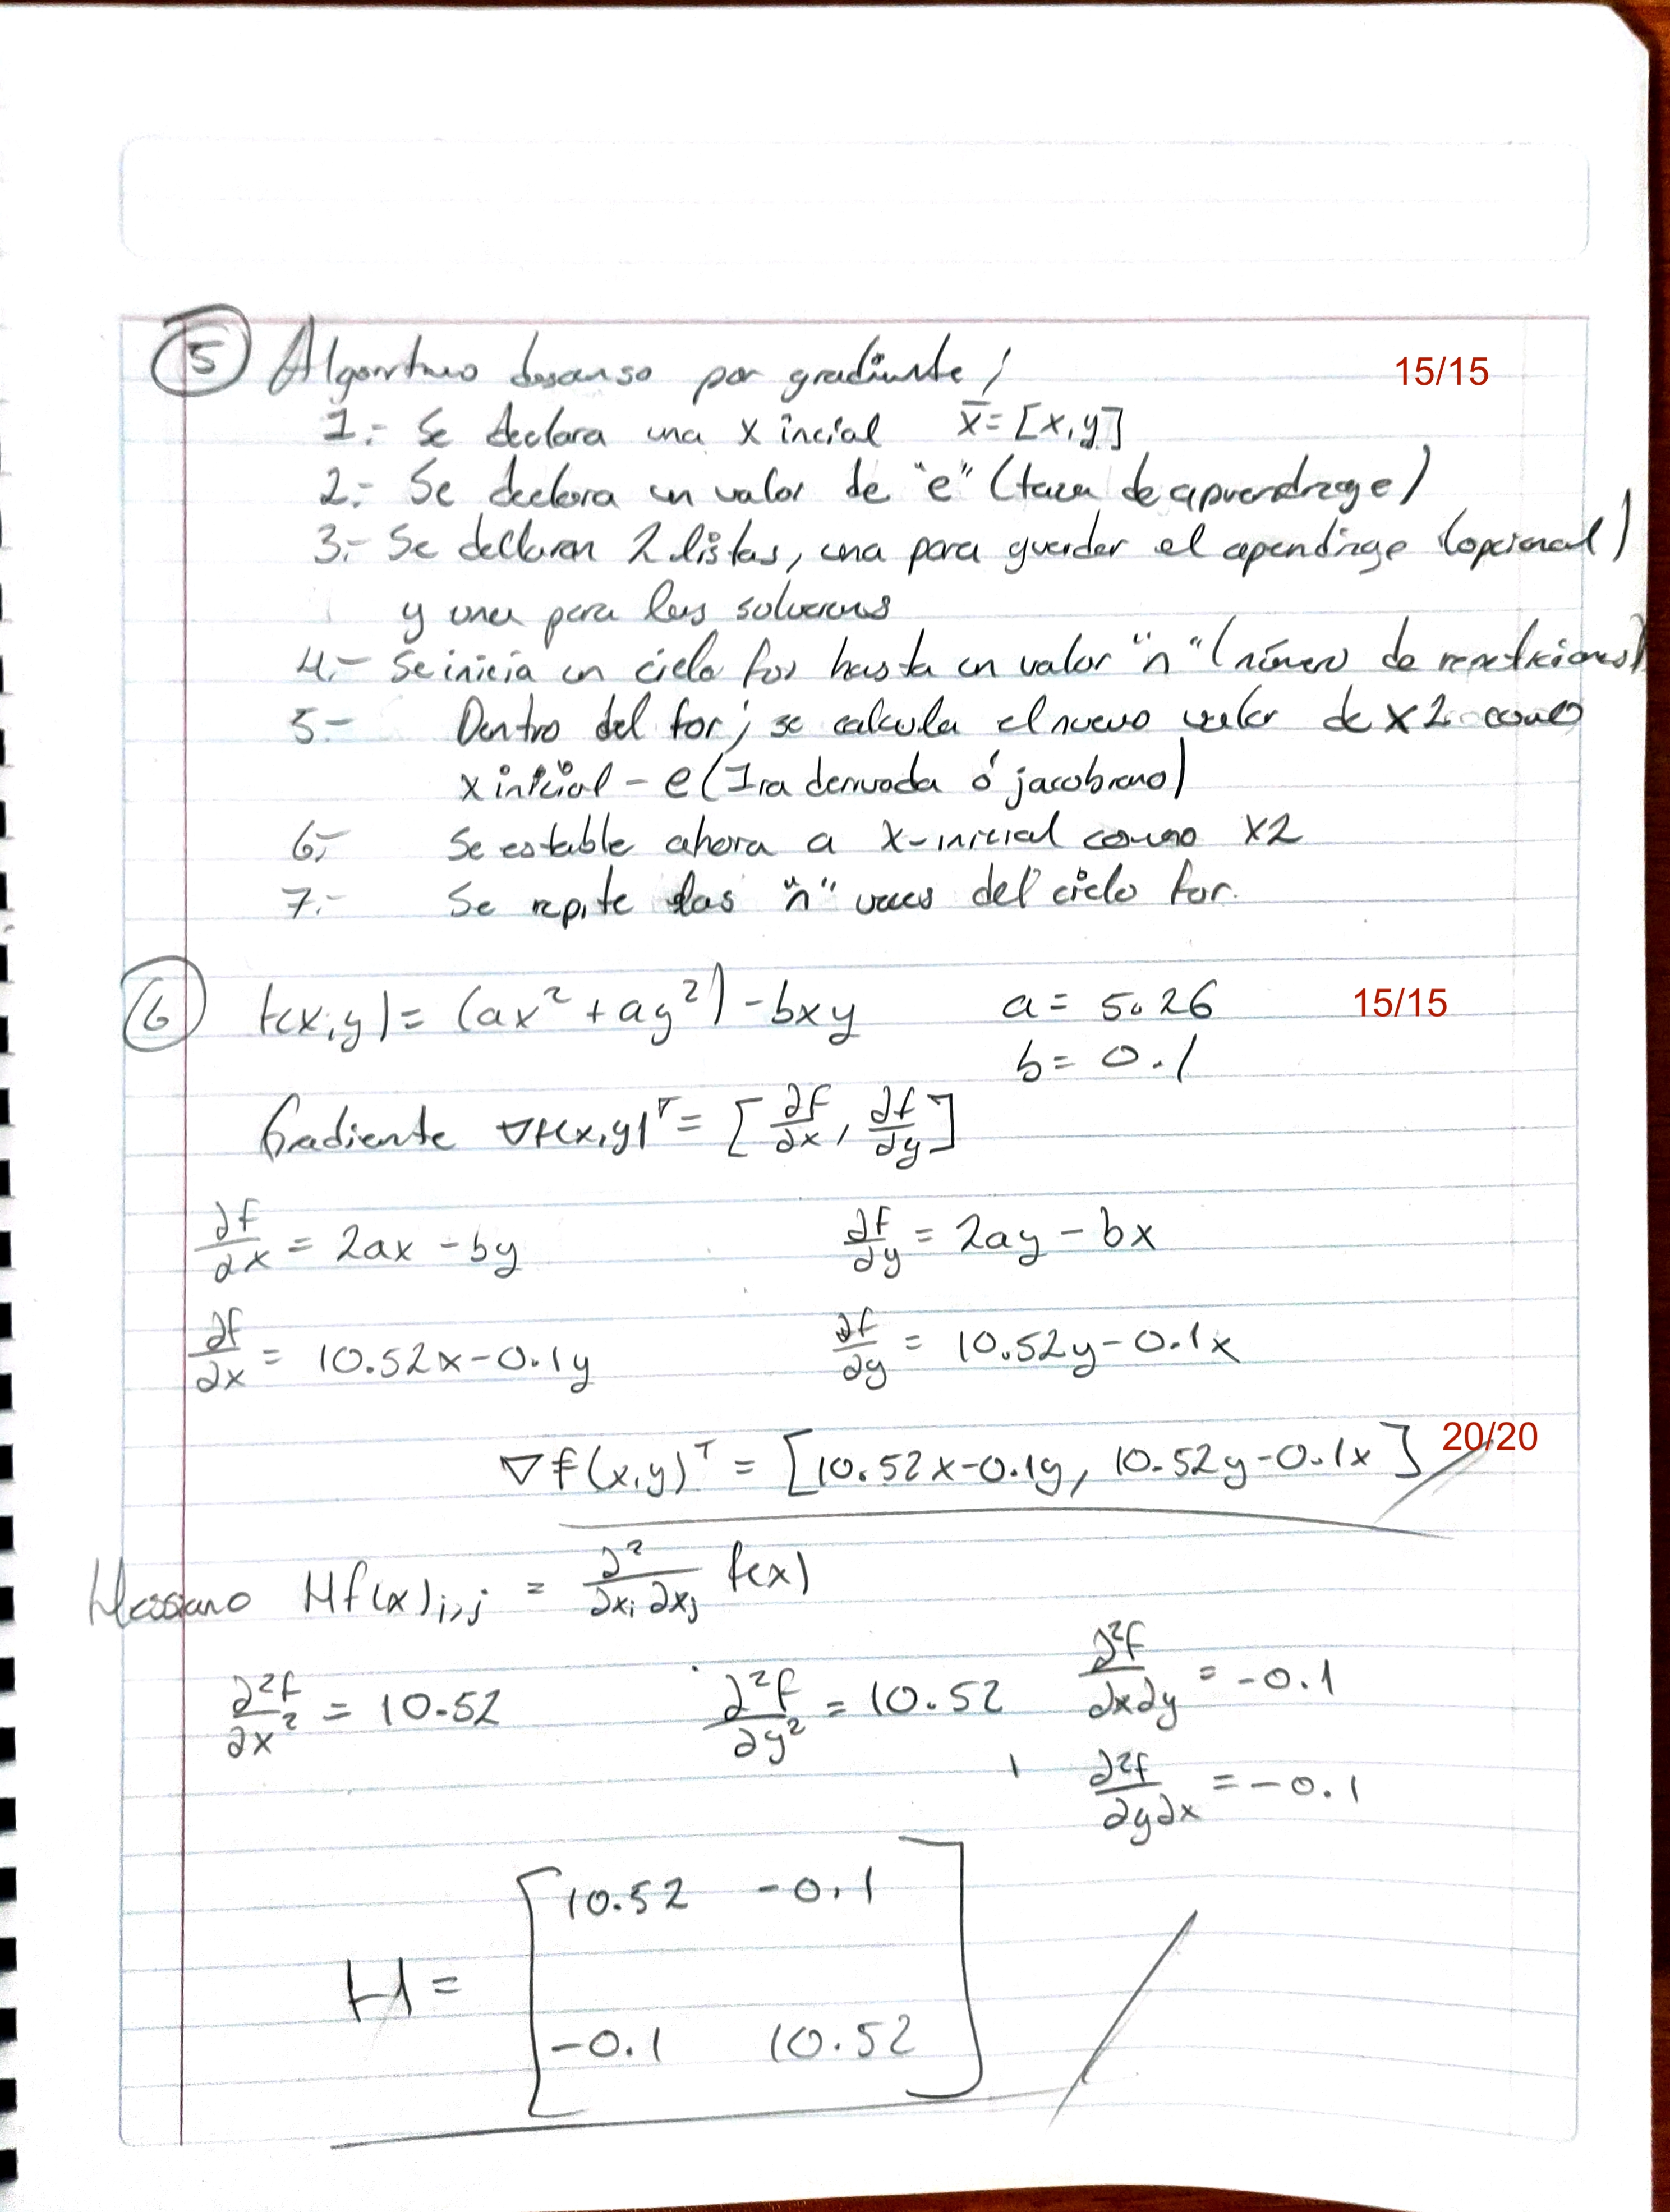 5 Algoritmo descenso por gradiente / 15/15
1.- Se declara una x incial x̄ = [x,y]
2.- Se declara un valor de "e" (taza de aprendizage)
3.- Se declaran 2 listas, una para guardar el apendizge (opcional)
y una para las soluciones
4.- Se inicia un ciclo for hasta un valor "n" (número de repeticiones)
5.- Dentro del for; se calcula el nuevo valor de x2 como
x inicial - e (1ra derivada ó jacobiano)
6.- Se estable ahora a x-inicial como x2
7.- Se repite las "n" veces del ciclo for.
6 f(x,y) = (ax² + ay²) - bxy a = 5.26 15/15
b = 0.1
Gradiente ∇f(x,y)ᵀ = [∂f/∂x, ∂f/∂y]
∂f/∂x = 2ax - by ∂f/∂y = 2ay - bx
∂f/∂x = 10.52x - 0.1y ∂f/∂y = 10.52y - 0.1x
∇f(x,y)ᵀ = [10.52x - 0.1y, 10.52y - 0.1x] 20/20
Hessiano Hf(x)i,j = ∂²/∂xi∂xj f(x)
∂²f/∂x² = 10.52 ∂²f/∂y² = 10.52 ∂²f/∂x∂y = -0.1
∂²f/∂y∂x = -0.1
H = [10.52 -0.1
-0.1 10.52]